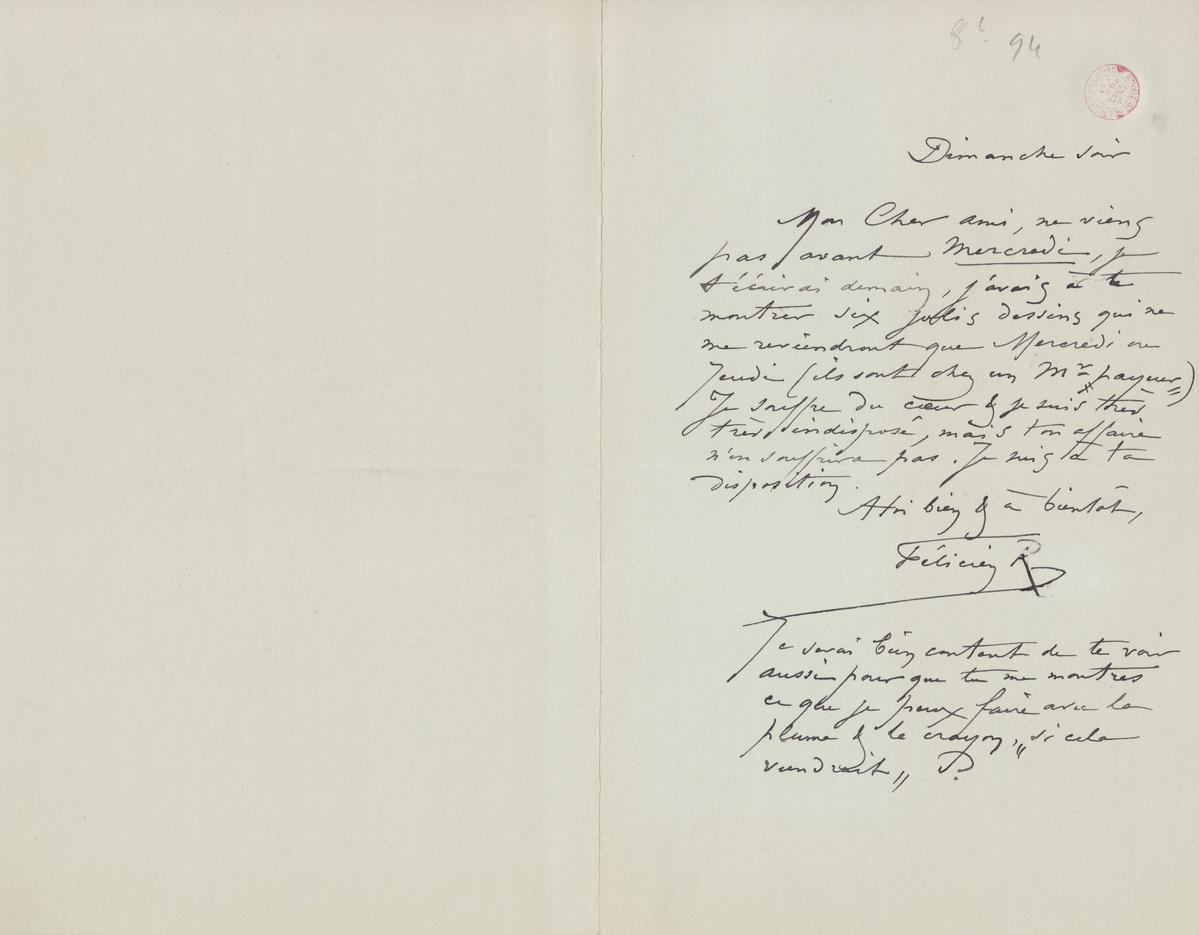 94
Dimanche soir
Mon Cher ami, ne viens
pas avant Mercredi, je
t'écirai demain, j'avais à te
montrer six jolis dessins qui ne
me reviendront que Mercredi ou
Jeudi (ils sont chez un Mr payeur)
Je souffre du cœur & je suis très
très indisposé, mais ton affaire
n'en souffrira pas. Je suis à ta
disposition.
A toi bien & à bientôt,
Félicien R
Je serai bien content de te voir
aussi pour que tu me montres
ce que je peux faire avec la
plume & le crayon, „si cela
viendrait„